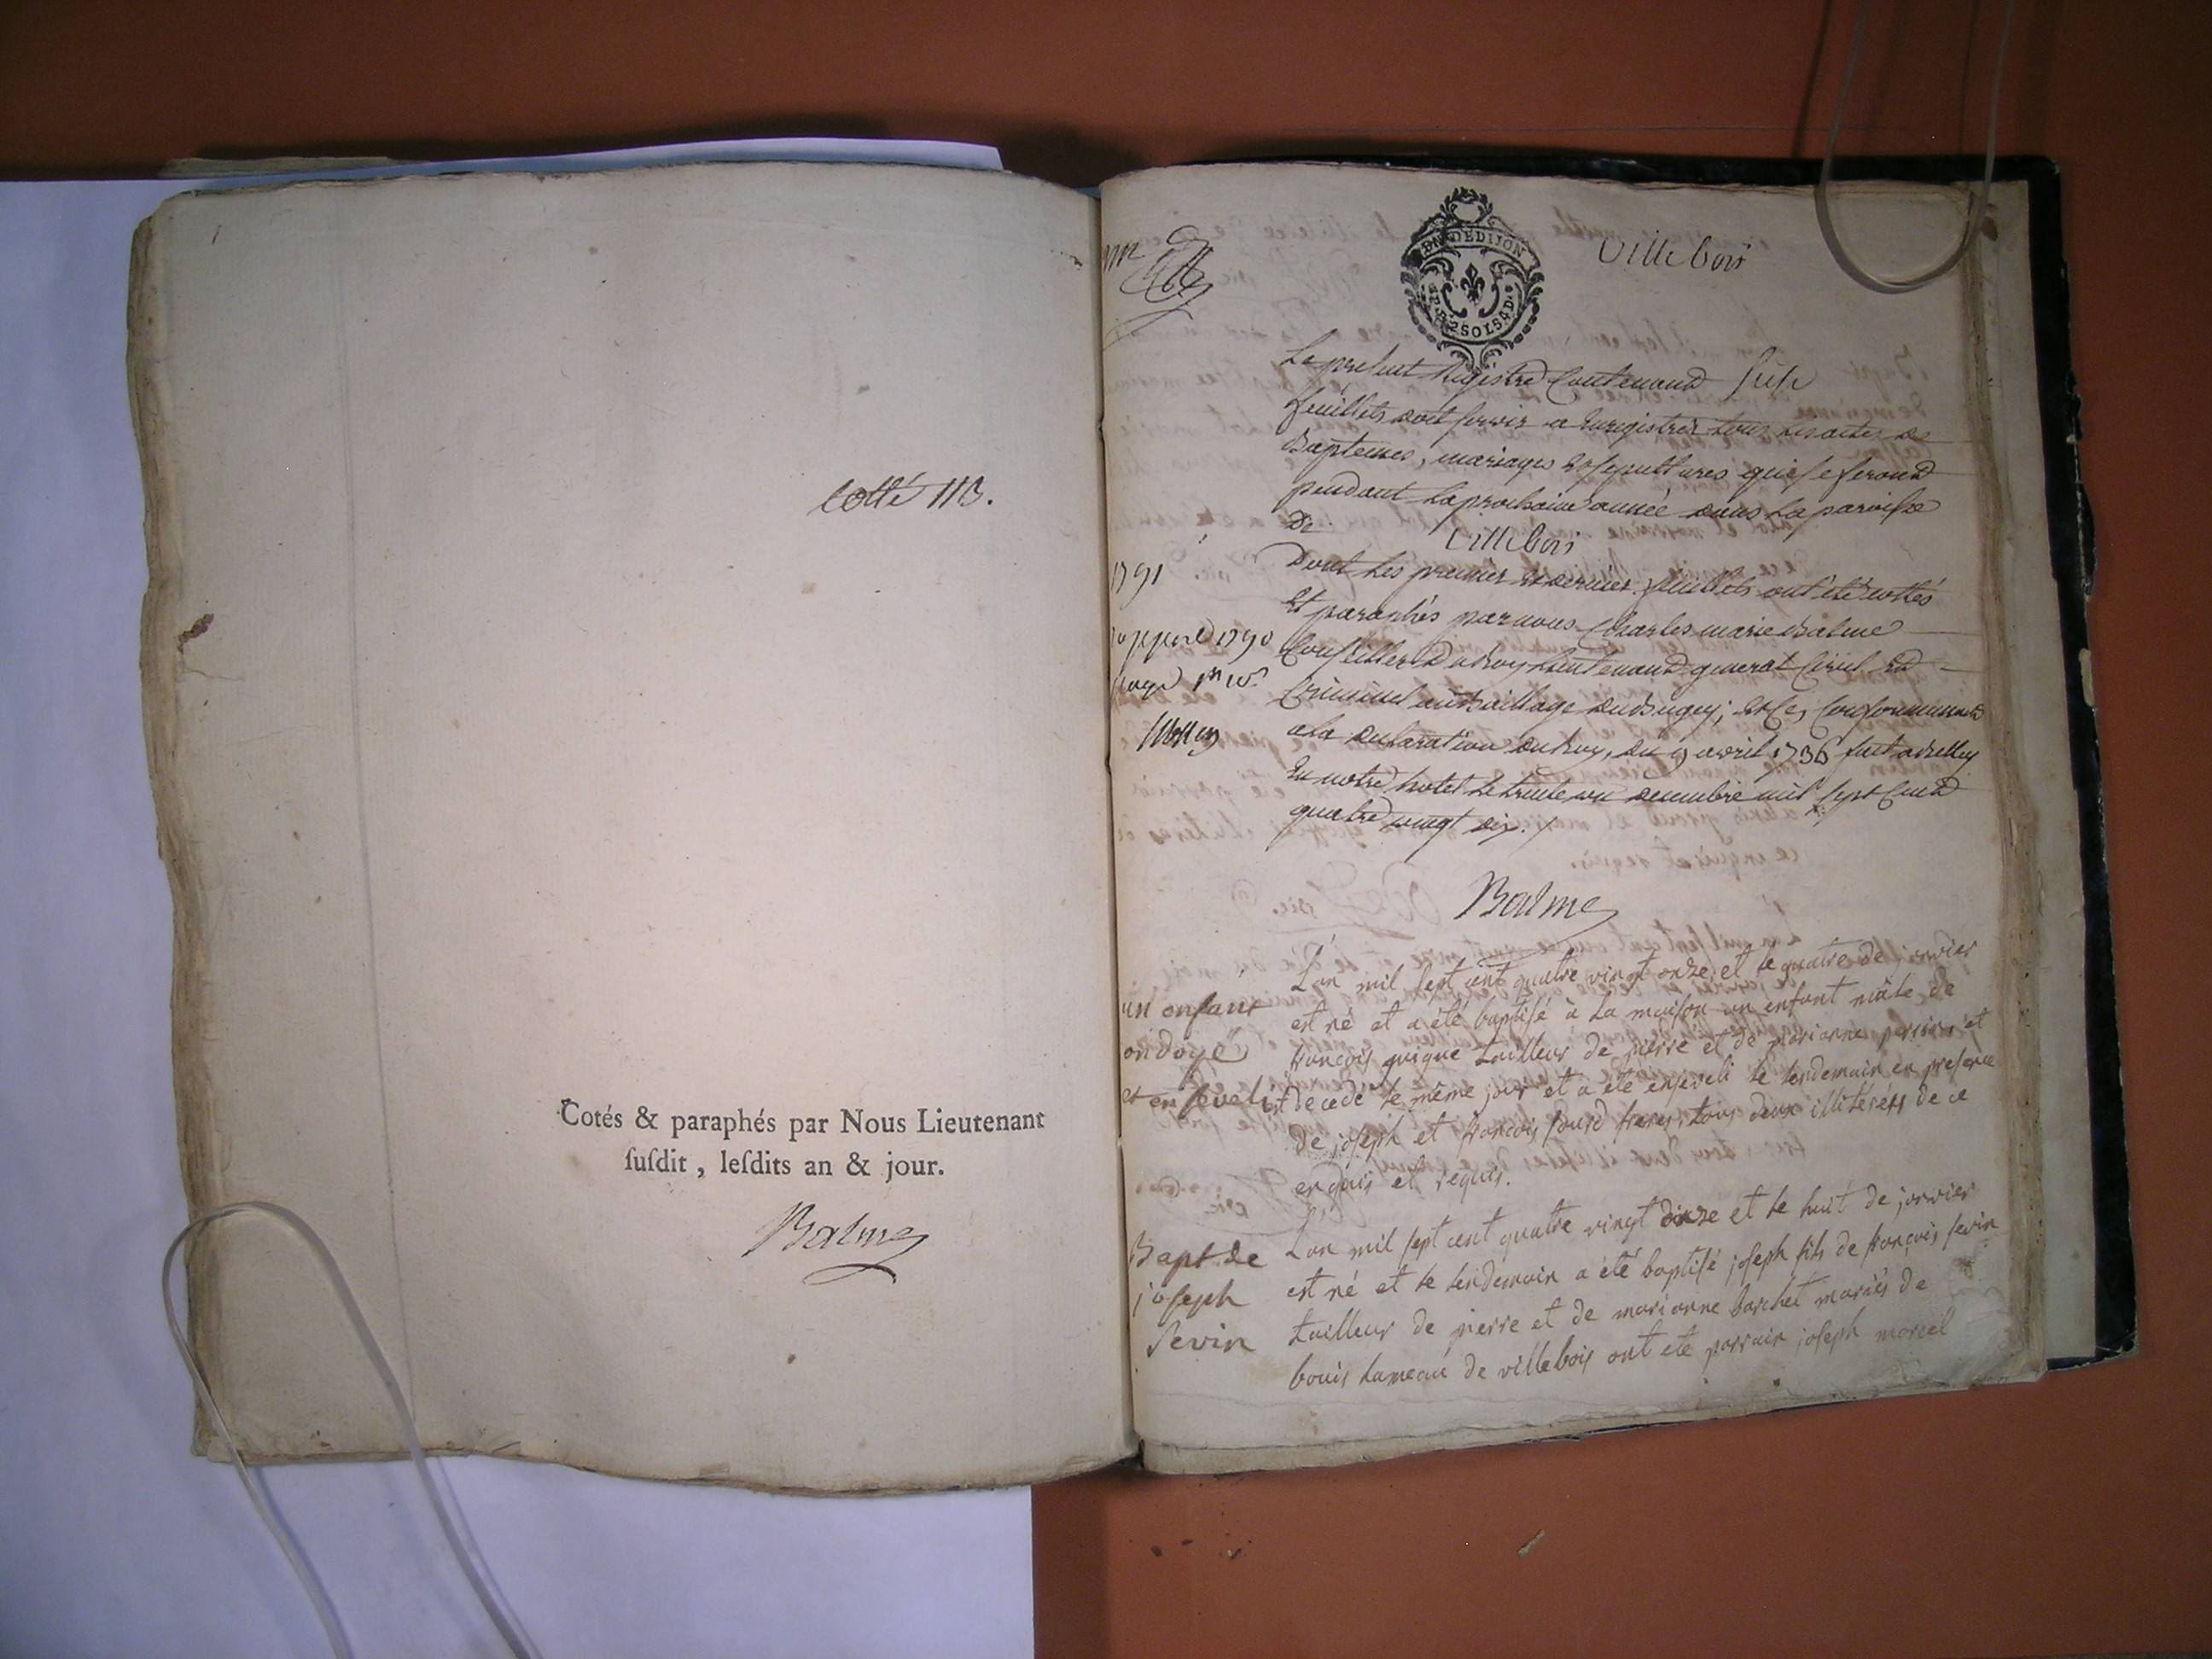 cotté 113.
Cotés & paraphés par Nous Lieutenant
ſuſdit, leſdits an & jour.
Balme
Villebois
GN DE DIJON
2 SOLS 4 D
Le present Registre Contenant Seize
feuillets doit servir a Enregistrer tous les actes de
Baptemes, mariages & sepultures qui se feront
pendant la prochaine année dans la paroisse
De Villebois
Dont les premier et dernier feuillets ont été cottés
Et paraphés par nous Charles marie Balme
Conseiller du roy Lieutenant general Civil et
Criminel au Bailliage du Bugey; et ce, Conformement
a la declaration du Roy, du 9 avril 1736 fait a Belley
En notre hotel le trente un decembre mil sept Cent
quatre vingt dix. /
1791
1790
Balme
un enfant
ondoyé
et enseveli
L'an mil sept cent quatre vingt onze, et le quatre de janvier
est né et a été baptisé à la maison un enfant mâle de
françois guigue tailleur de pierre et de marianne perrin, et
est decedé le même jour et a été enseveli le lendemain en presence
de joseph et françois sourd freres, tous deux illitérés de ce
enquis et requis.
Bapt. de
joseph
Sevin
L'an mil sept cent quatre vingt onze et le huit de janvier
est né et le lendemain a été baptisé joseph fils de françois sevin
tailleur de pierre et de marianne barchet mariés de
bouis hameau de villebois ont ete parrain joseph marcel